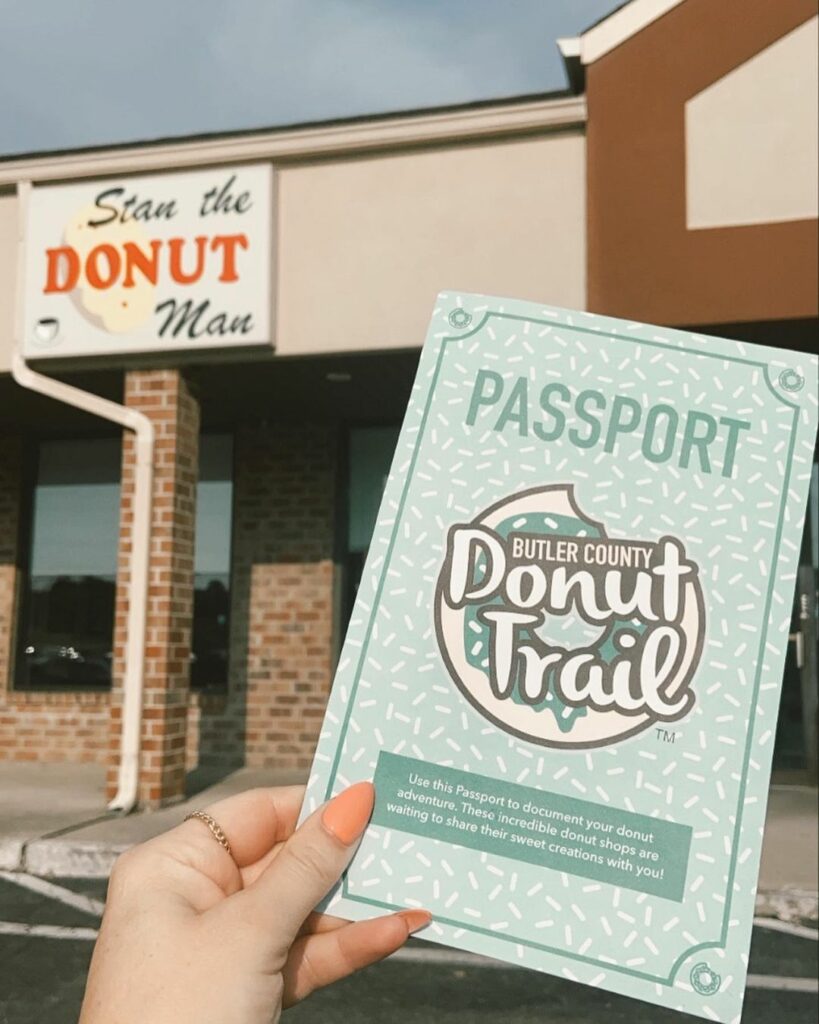 Stan the
DONUT
Man
PASSPORT
BUTLER COUNTY
Donut
Trail
TM
Use this Passport to document your donut
adventure. These incredible donut shops are
waiting to share their sweet creations with you!